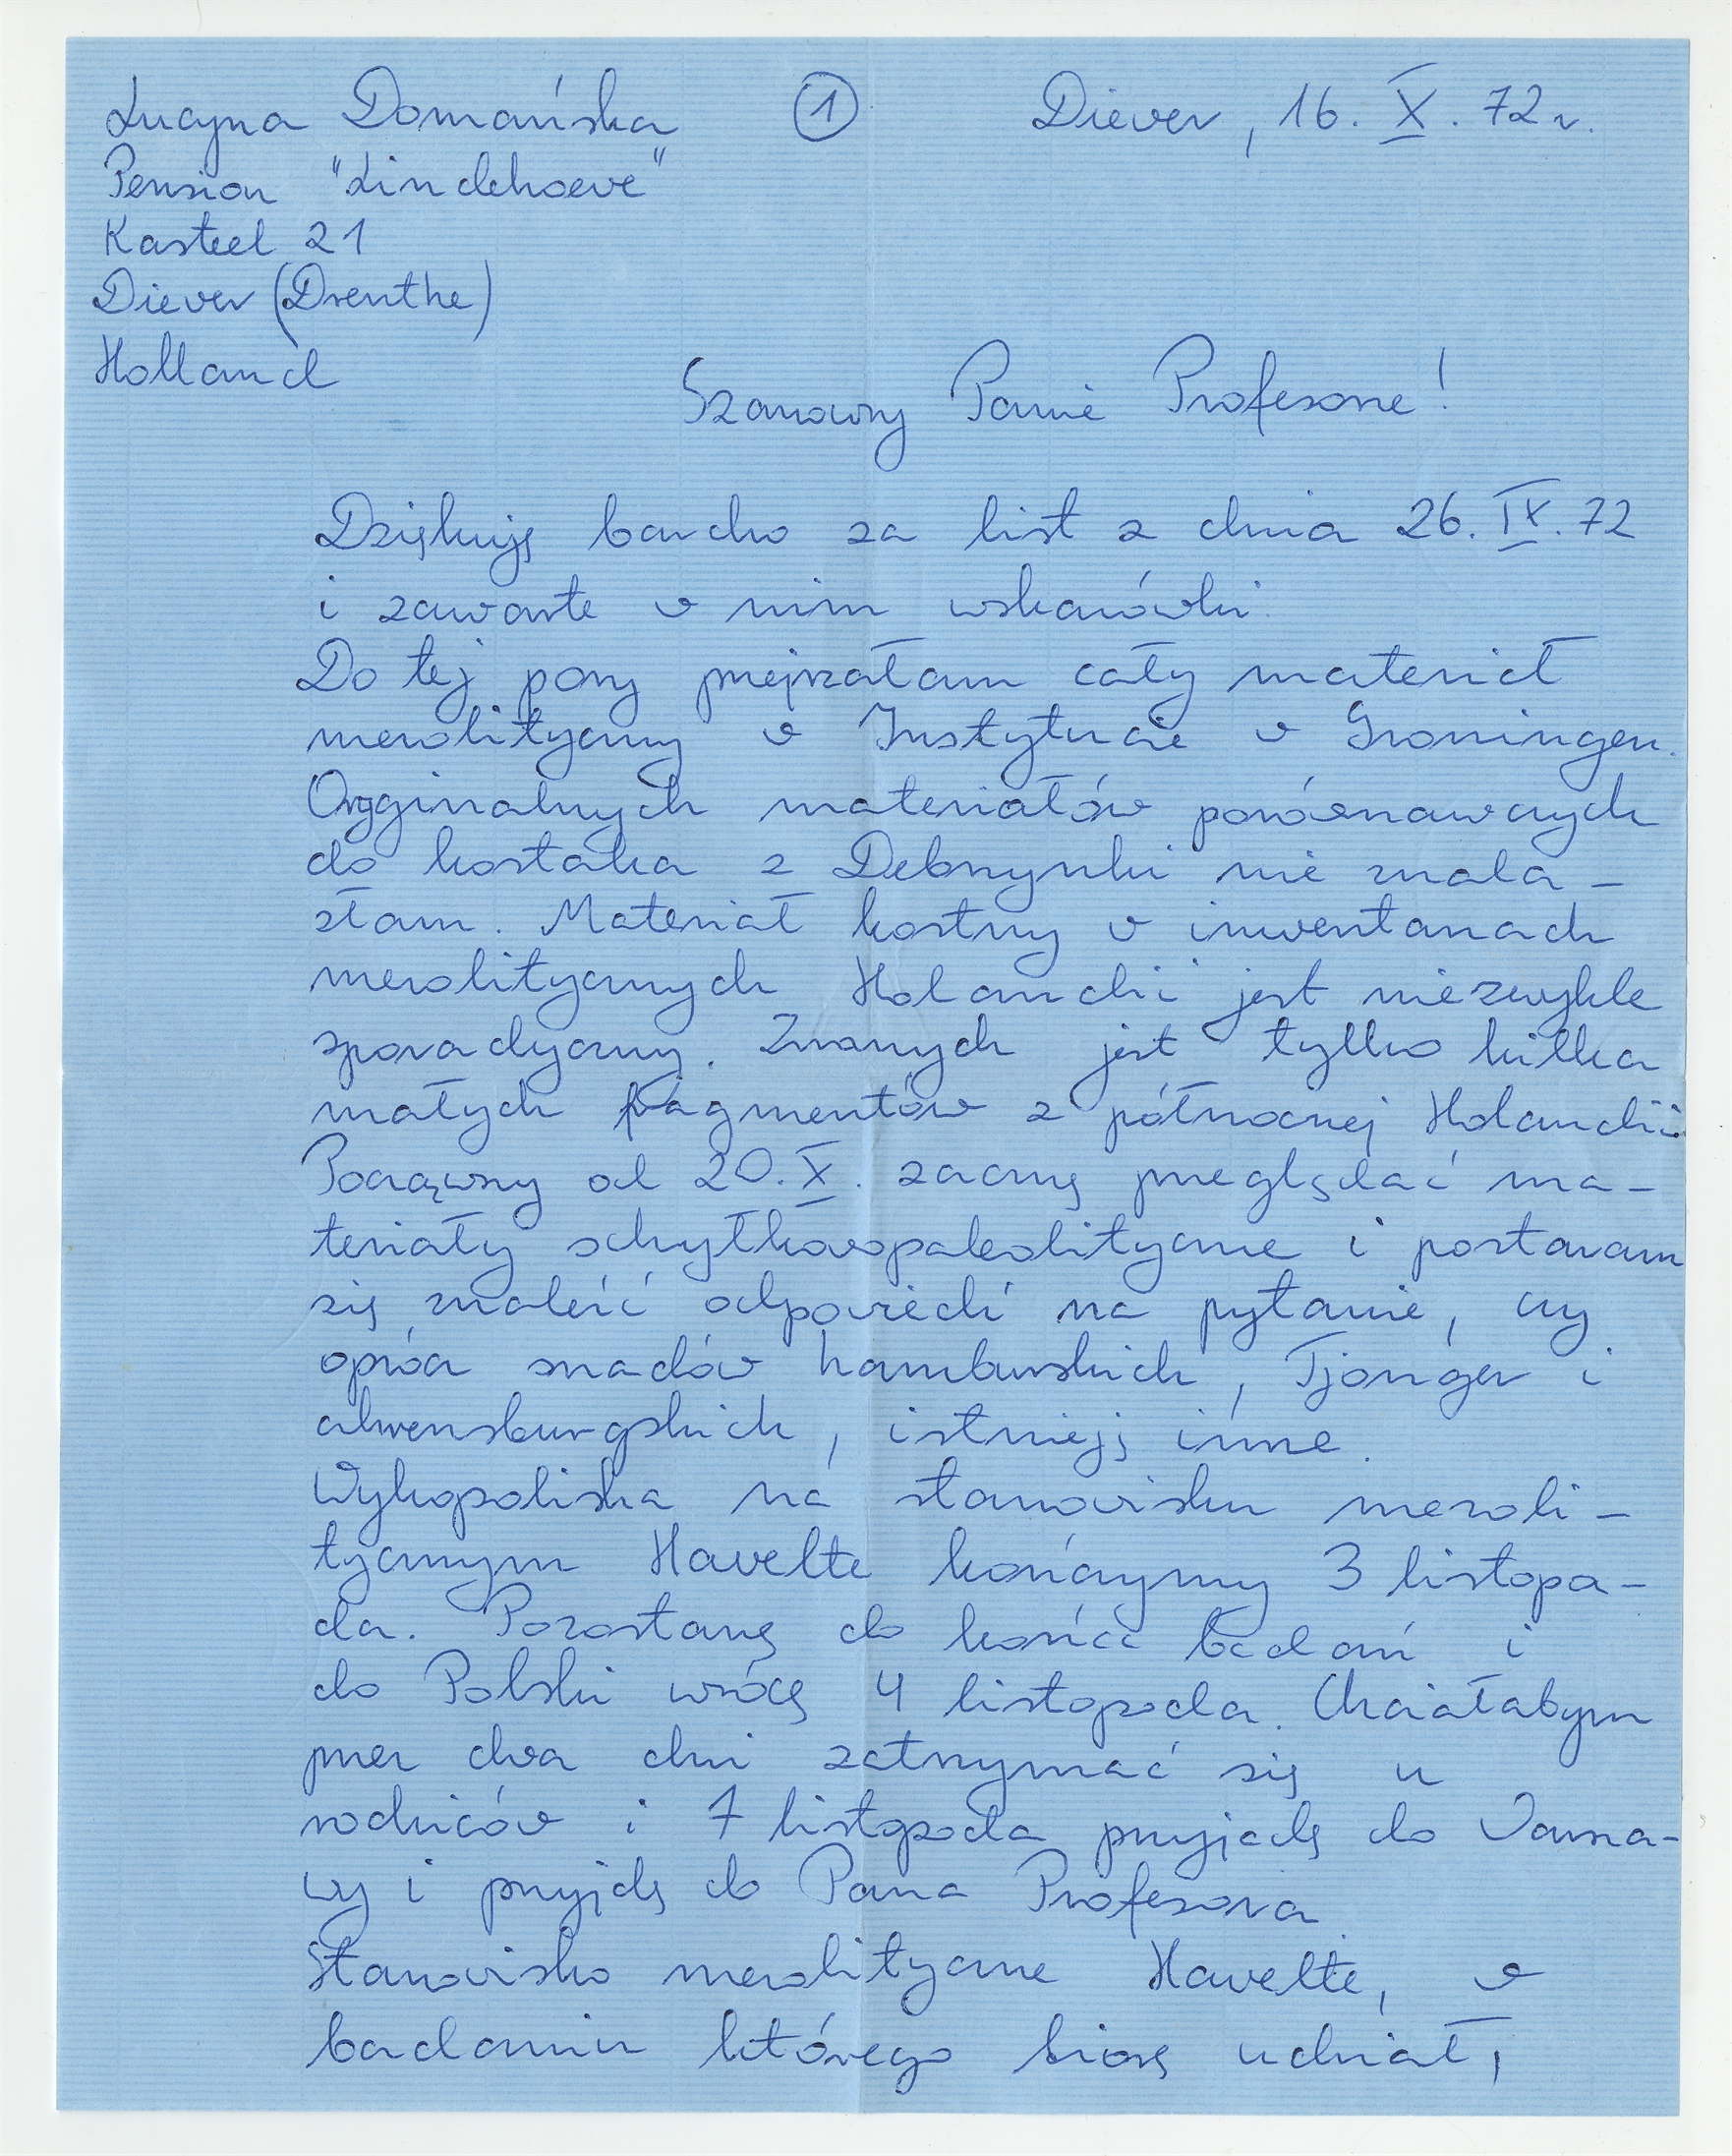 Lucyna Domańska ① Diever, 16. X. 72 r.
Pension "Lindehoeve"
Kasteel 21
Diever (Drenthe)
Holland
Szanowny Panie Profesorze!
Dziękuję bardzo za list z dnia 26. IX. 72
i zawarte w nim wskazówki.
Do tej pory przejrzałam cały materiał
mezolityczny w Instytucie w Groningen.
Orgginalnych materiałów porównawczych
do kostaka z Dębrzynki nie znala-
złam. Materiał kostny w inwentarzach
mezolitycznych Holandii jest niezwykle
sporadyczny. Znanych jest tylko kilka
małych fragmentów z północnej Holandii.
Począwszy od 20. X. zacznę przeglądać ma-
teriały schyłkowopaleolityczne i postaram
się znaleźć odpowiedź na pytanie, czy
oprócz śladów hamburskich, Tjonger i
ahrensburgskich, istnieją inne.
Wykopaliska na stanowisku mezoli-
tycznym Havelte kończymy 3 listopa-
da. Pozostanę do końca badań i
do Polski wrócę 4 listopada. Chciałabym
przez dwa dni zatrzymać się u
rodziców i 7 listopada przyjadę do Warsza-
wy i przyjdę do Pana Profesora.
Stanowisko mezolityczne Havelte, w
badaniu którego biorę udział,